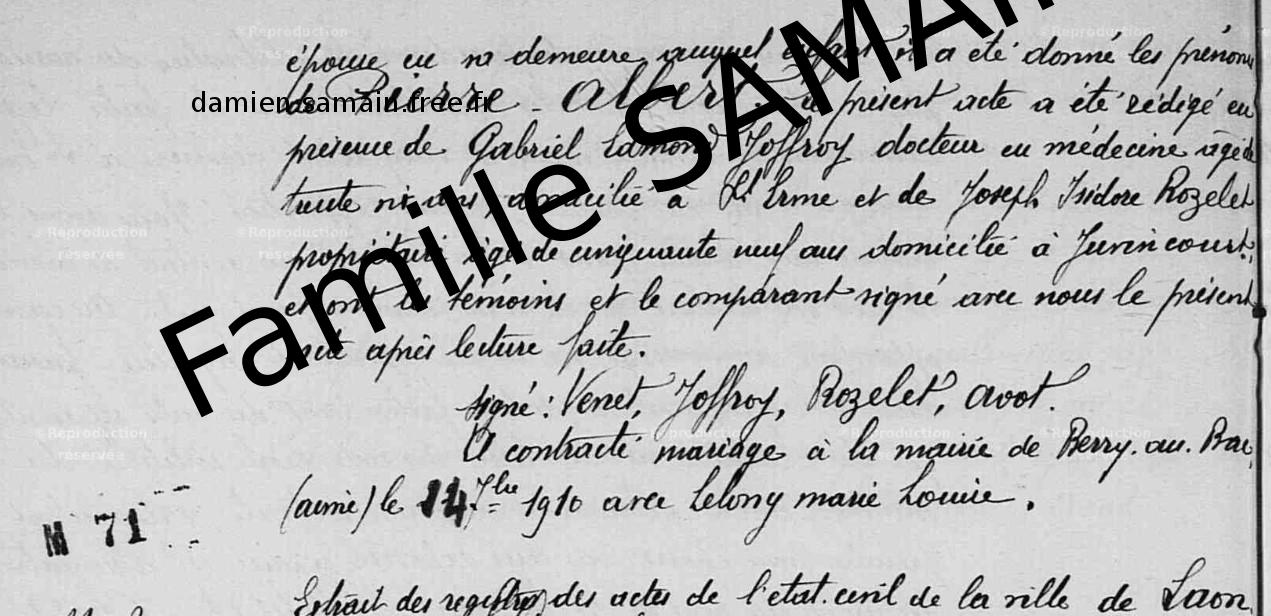 épouse en sa demeure auquel enfant il a été donné les prénoms
de Pierre - Albert. Le présent acte a été rédigé en
présence de Gabriel Edmond Joffroy docteur en médecine âgé de
trente six ans, domicilié à St Erme et de Joseph Isidore Rozelet
propriétaire âgé de cinquante neuf ans domicilié à Juvincourt,
et ont les témoins et le comparant signé avec nous le présent
acte après lecture faite.
signé: Venet, Joffroy, Rozelet, avot.
A contracté mariage à la mairie de Berry-au-Bac
(aisne) le 14 7bre 1910 avec Lelong marie Louise.
M 71
Extrait des registres des actes de l'état civil de la ville de Laon
Famille SAMAIN
damien.samain.free.fr
© Reproduction
réservée